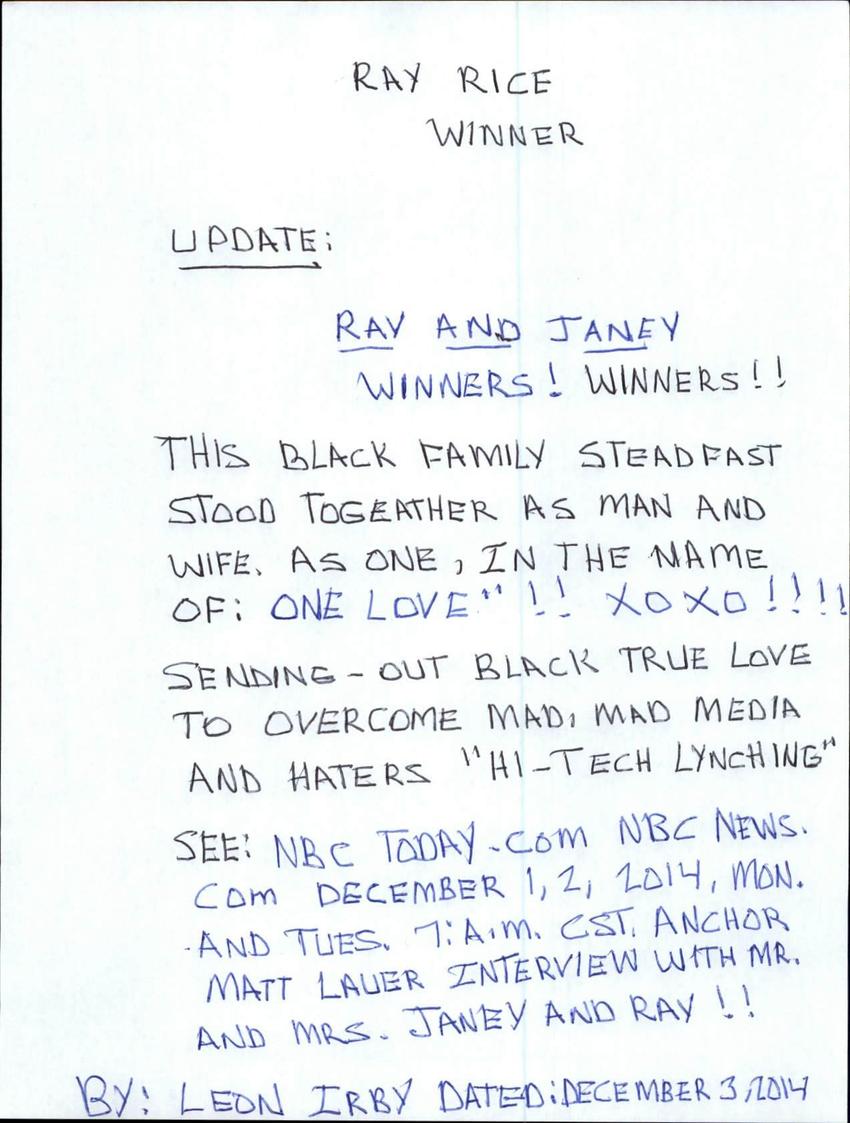 RAY RICE
WINNER
UPDATE:
RAY AND JANEY
WINNERS! WINNERS!!
THIS BLACK FAMILY STEADFAST
STOOD TOGEATHER AS MAN AND
WIFE. AS ONE, IN THE NAME
OF: ONE LOVE" !! XOXO!!!!
SENDING-OUT BLACK TRUE LOVE
TO OVERCOME MAD, MAD MEDIA
AND HATERS "HI-TECH LYNCHING"
SEE: NBC TODAY.COM NBC NEWS.
COM DECEMBER 1, 2, 2014, MON.
AND TUES. 7:A.M. CST. ANCHOR
MATT LAUER INTERVIEW WITH MR.
AND MRS. JANEY AND RAY !!
BY: LEON IRBY DATED:DECEMBER 3,2014